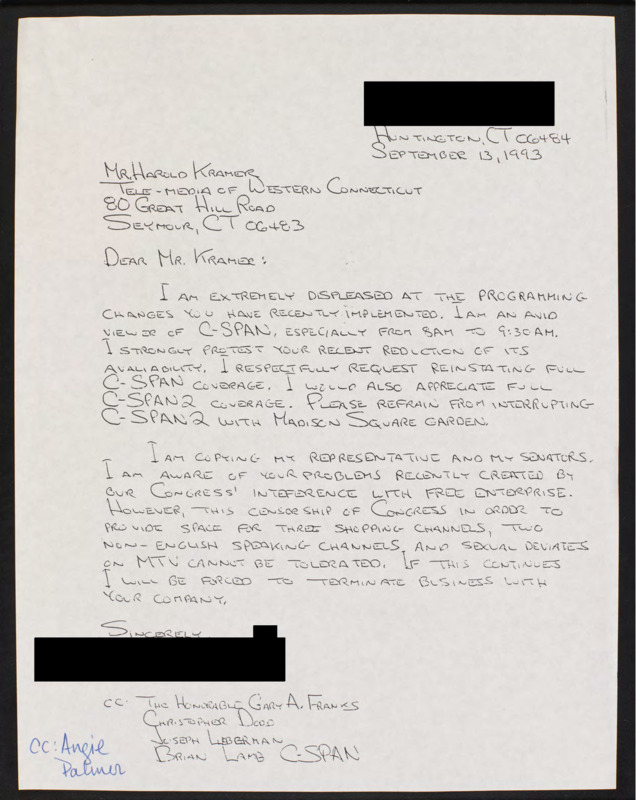 HUNTINGTON, CT 06484
SEPTEMBER 13, 1993
MR. HAROLD KRAMER
TELE-MEDIA OF WESTERN CONNECTICUT
80 GREAT HILL ROAD
SEYMOUR, CT 06483
DEAR MR. KRAMER:
I AM EXTREMELY DISPLEASED AT THE PROGRAMMING
CHANGES YOU HAVE RECENTLY IMPLEMENTED. I AM AN AVID
VIEWER OF C-SPAN, ESPECIALLY FROM 8AM TO 9:30AM.
I STRONGLY PROTEST YOUR RECENT REDUCTION OF ITS
AVALIABILITY. I RESPECTFULLY REQUEST REINSTATING FULL
C-SPAN COVERAGE. I WOULD ALSO APPRECIATE FULL
C-SPAN2 COVERAGE. PLEASE REFRAIN FROM INTERRUPTING
C-SPAN2 WITH MADISON SQUARE GARDEN.
I AM COPYING MY REPRESENTATIVE AND MY SENATORS.
I AM AWARE OF YOUR PROBLEMS RECENTLY CREATED BY
OUR CONGRESS' INTEFERENCE WITH FREE ENTERPRISE.
HOWEVER, THIS CENSORSHIP OF CONGRESS IN ORDER TO
PROVIDE SPACE FOR THREE SHOPPING CHANNELS, TWO
NON-ENGLISH SPEAKING CHANNELS, AND SEXUAL DEVIATES
ON MTV CANNOT BE TOLERATED. IF THIS CONTINUES
I WILL BE FORCED TO TERMINATE BUSINESS WITH
YOUR COMPANY.
SINCERELY
CC: THE HONORABLE GARY A. FRANKS
CHRISTOPHER DODD
JOSEPH LIEBERMAN
BRIAN LAMB C-SPAN
CC: Angie
Palmer